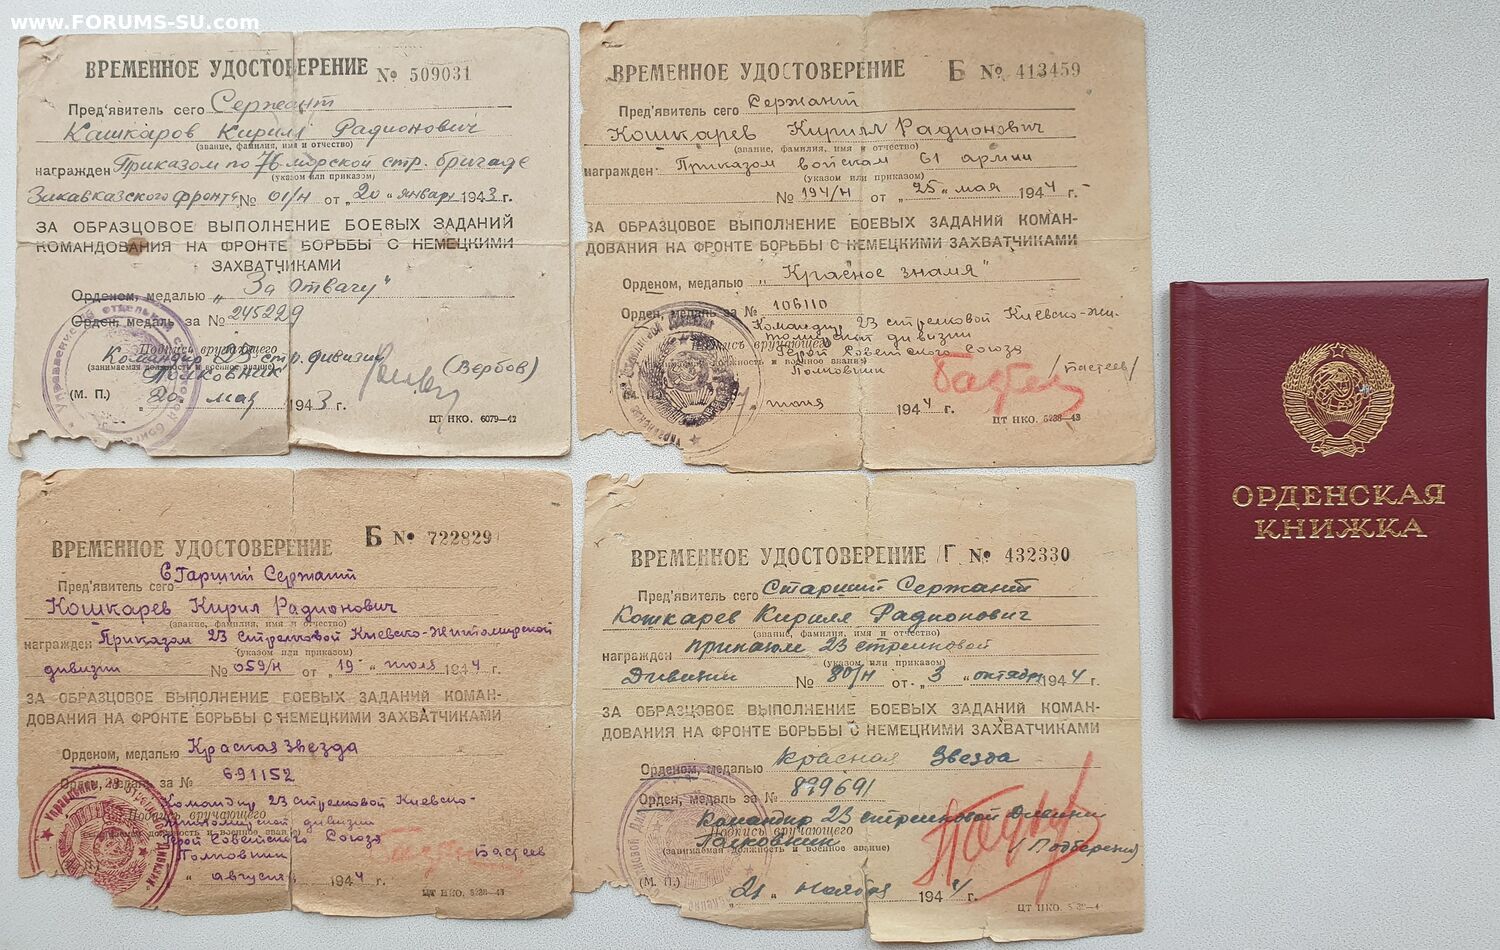 www.FORUMS-SU.com
ВРЕМЕННОЕ УДОСТОВЕРЕНИЕ № 509031
Пред'явитель сего Сержант
Кашкаров Кирилл Радионович
(звание, фамилия, имя и отчество)
награжден Приказом по 76 морской стр. бригаде
(указом или приказом)
Закавказского фронта № 01/н от „20" январ 1943 г.
ЗА ОБРАЗЦОВОЕ ВЫПОЛНЕНИЕ БОЕВЫХ ЗАДАНИЙ
КОМАНДОВАНИЯ НА ФРОНТЕ БОРЬБЫ С НЕМЕЦКИМИ
ЗАХВАТЧИКАМИ
Орденом, медалью „За отвагу"
Орден, медаль за № 245229
Подпись вручающего
Командир 23 стр. дивизии
(занимаемая должность и военное звание)
Полковник (Вербов)
(М. П.) „20" мая 1943 г.
ЦТ НКО. 6079—42
ВРЕМЕННОЕ УДОСТОВЕРЕНИЕ Б № 413459
Пред'явитель сего Сержант
Кошкарев Кирилл Радионович
(звание, фамилия, имя и отчество)
награжден Приказом войскам 61 армии
(указом или приказом)
№ 194/н от „25" мая 1944 г.
ЗА ОБРАЗЦОВОЕ ВЫПОЛНЕНИЕ БОЕВЫХ ЗАДАНИЙ КОМАН-
ДОВАНИЯ НА ФРОНТЕ БОРЬБЫ С НЕМЕЦКИМИ ЗАХВАТЧИКАМИ
Орденом, медалью „Красное знамя"
Орден, медаль за № 106110
Командир 23 стрелковой Киевско-Жи-
томирской дивизии
Подпись вручающего
Герой Советского Союза
Полковник /Бастеев/
июня 1944 г.
ЦТ НКО. 5238—43
ВРЕМЕННОЕ УДОСТОВЕРЕНИЕ Б № 722829
Пред'явитель сего Старший Сержант
Кошкарев Кирил Радионович
(звание, фамилия, имя и отчество)
награжден Приказом 23 стрелковой Киевско-Житомирской
(указом или приказом)
дивизии № 059/н от „19" июля 1944 г.
ЗА ОБРАЗЦОВОЕ ВЫПОЛНЕНИЕ БОЕВЫХ ЗАДАНИЙ КОМАН-
ДОВАНИЯ НА ФРОНТЕ БОРЬБЫ С НЕМЕЦКИМИ ЗАХВАТЧИКАМИ
Орденом, медалью Красная Звезда
Орден, медаль за № 691152
Командир 23 стрелковой Киевско-
Житомирской дивизии
Подпись вручающего
Герой Советского Союза
Полковник Бастеев
„ августа 1944 г.
ЦТ НКО. 5238—43
ВРЕМЕННОЕ УДОСТОВЕРЕНИЕ Г № 432330
Пред'явитель сего Старший Сержант
Кошкарев Кирилл Радионович
(звание, фамилия, имя и отчество)
награжден приказом 23 стрелковой
(указом или приказом)
Дивизии № 80/н от „3" октября 1944 г.
ЗА ОБРАЗЦОВОЕ ВЫПОЛНЕНИЕ БОЕВЫХ ЗАДАНИЙ КОМАН-
ДОВАНИЯ НА ФРОНТЕ БОРЬБЫ С НЕМЕЦКИМИ ЗАХВАТЧИКАМИ
Орденом, медалью Красная Звезда
Орден, медаль за № 899691
Командир 23 стрелковой Дивизии
Подпись вручающего
Полковник
(занимаемая должность и военное звание)
(М. П.)
„21" ноября 1944 г.
ЦТ НКО.
ОРДЕНСКАЯ
КНИЖКА